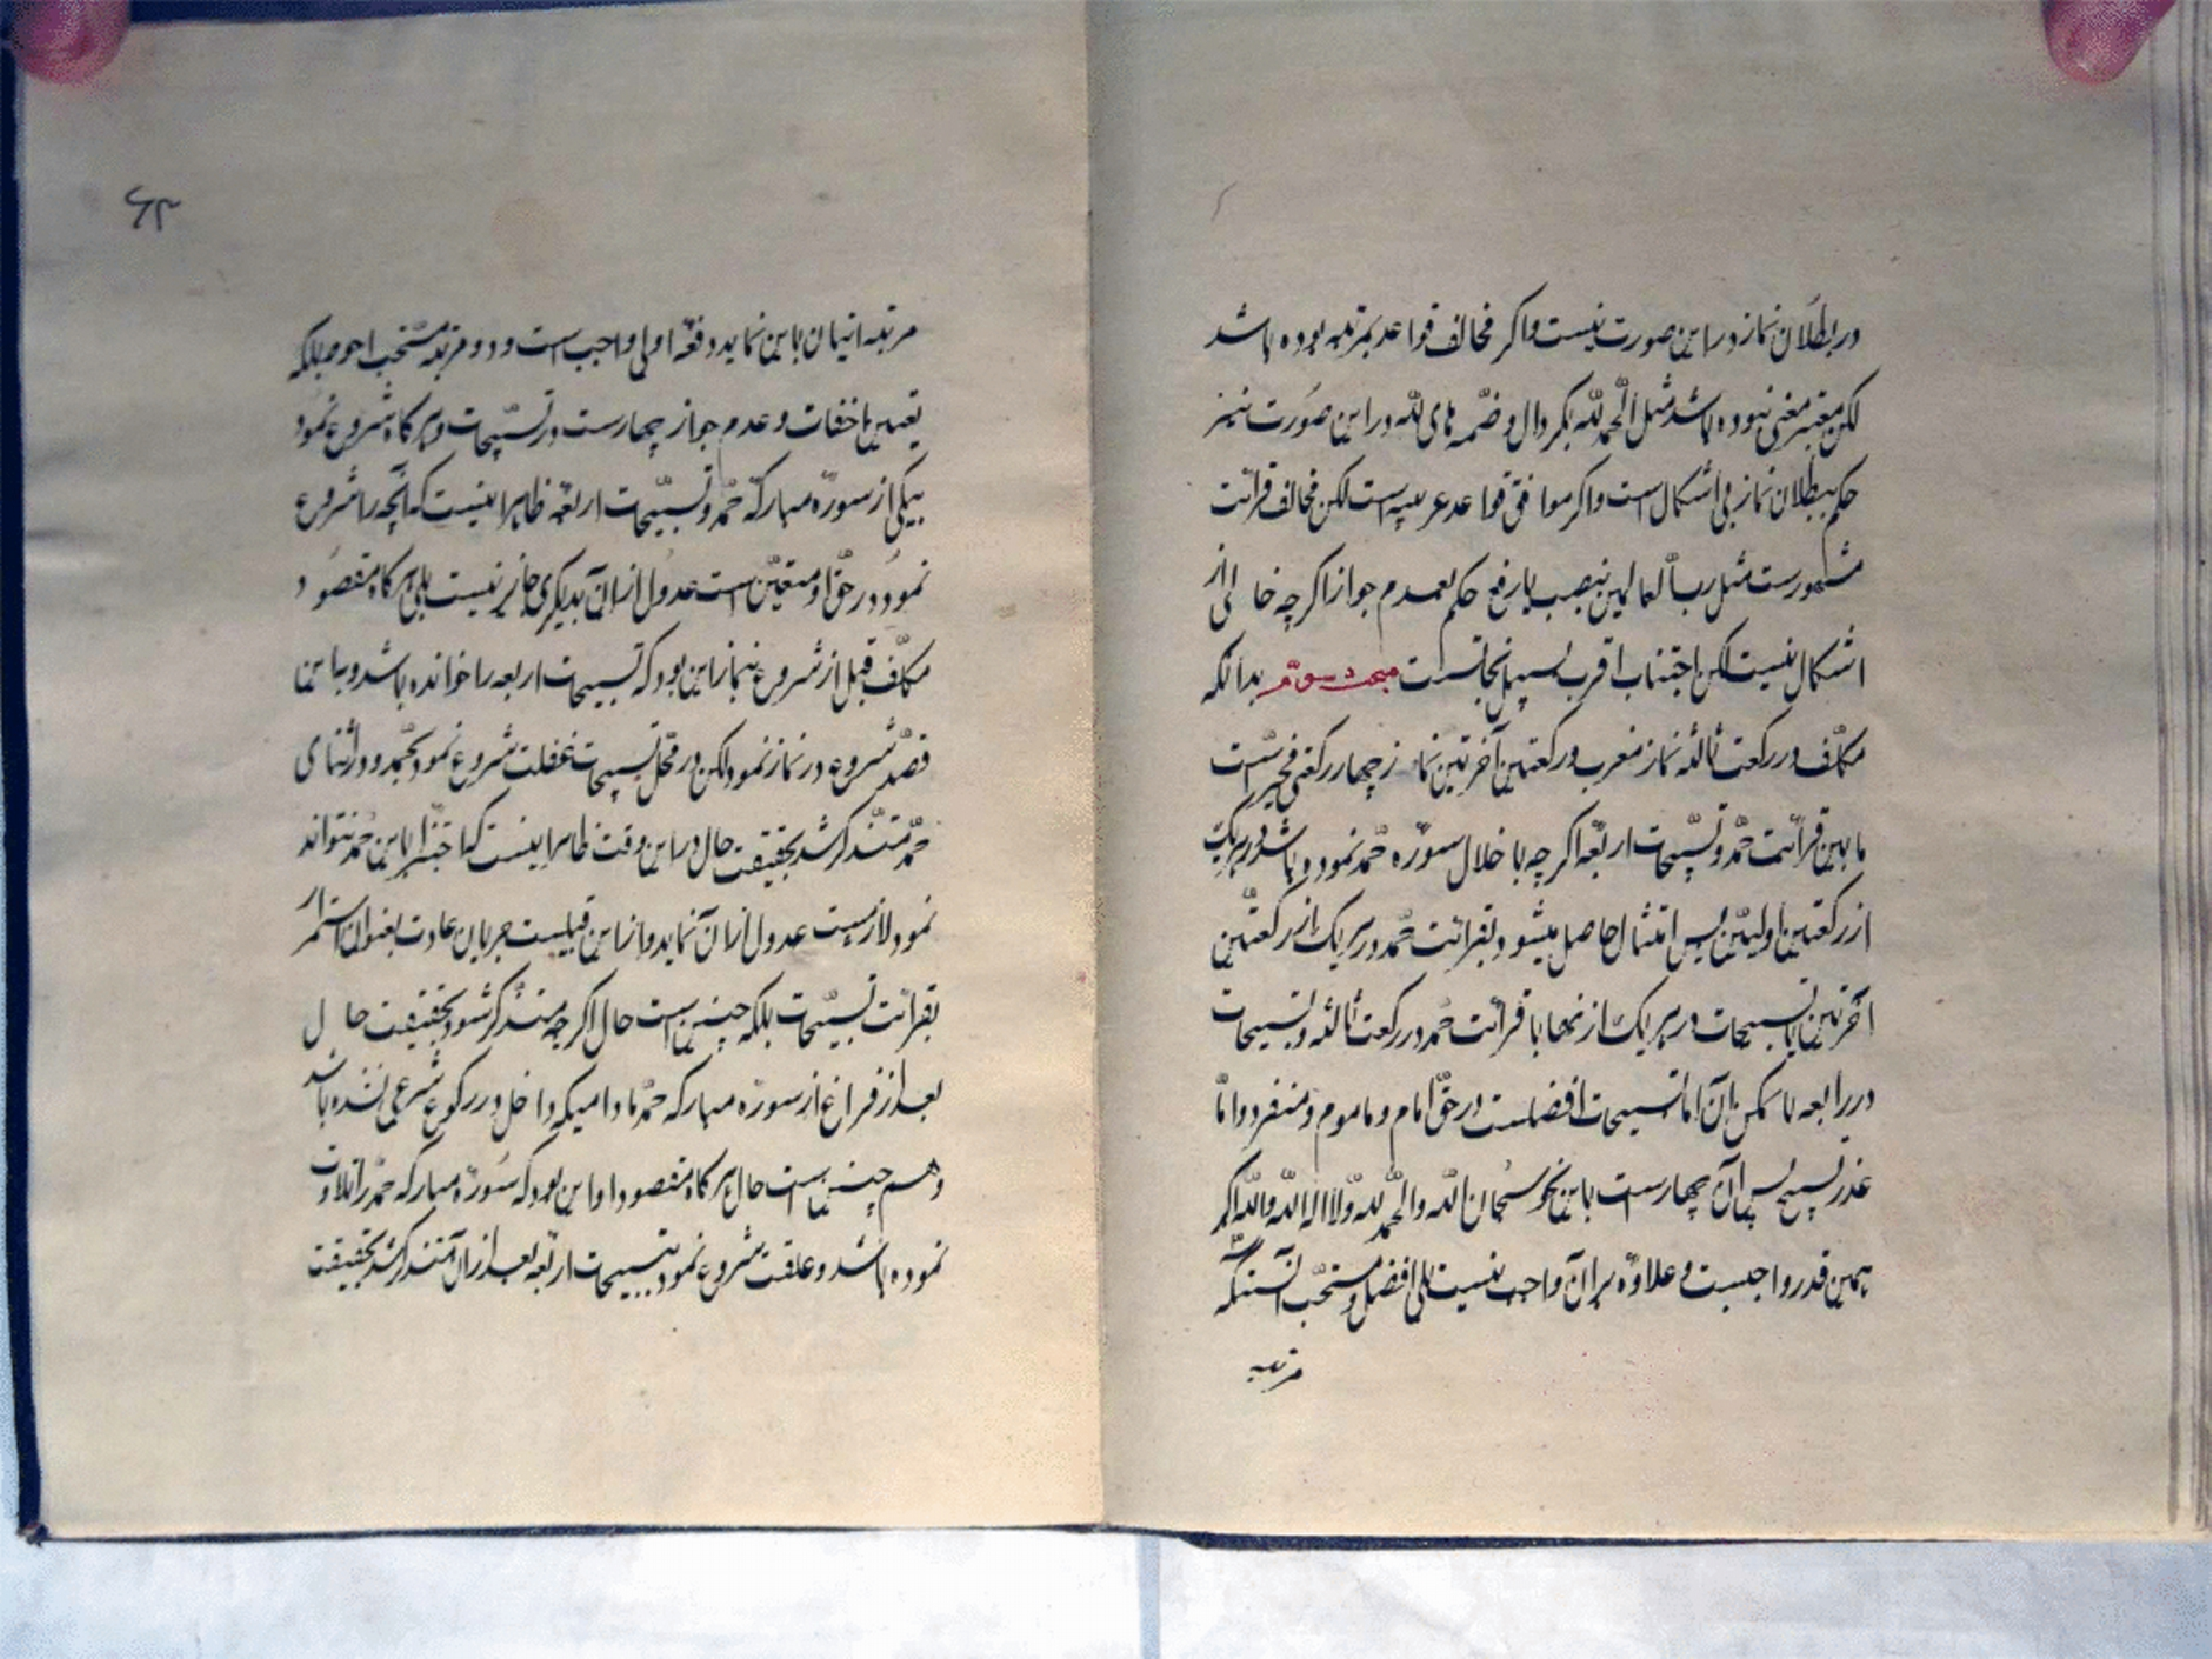 در بطلان نماز در این صورت نیست و اگر مخالف قواعد عربیه بوده باشد
لکن مغیر معنی نبوده باشد مثل الحمد لله بکسر دال و ضمه های لله در این صورت نیز
حکم ببطلان نماز بی اشکال است و اگر موافق قواعد عربیه است لکن مخالف قرائت
مشهور است مثل رب العالمین بنصب یا رفع حکم بعدم جواز اگر چه خالی از
اشکال نیست لکن اجتناب اقرب بسبیل نجاتست مبحث سوم بدانکه
مکلف در رکعت ثالثه نماز مغرب و رکعتین آخرتین نماز چهار رکعتی مخیر است
ما بین قرائت حمد و تسبیحات اربعه اگر چه با خلال سوره حمد نموده باشد در هر یک
از رکعتین اولیین پس امتثال حاصل میشود بقرائت حمد در هر یک از رکعتین
آخرتین یا تسبیحات در هر یک از نها یا قرائت حمد در رکعت ثالثه و تسبیحات
در رابعه یا عکس آن اما تسبیحات افضلست در حق امام و ماموم و منفرد و اما
عدد تسبیح پس آن چهار است باین نحو سبحان الله والحمد لله ولا اله الا الله والله اکبر
همین قدر واجبست و علاوه بر آن واجب نیست بلی افضل و مستحب آنستکه
مرتبه
۶۳
مرتبه اتیان باین نماید دفعه اولی واجب است و دو مرتبه مستحب احوط بلکه
تعین اخفات و عدم جواز جهار است در تسبیحات و هر گاه شروع نمود
بیکی از سوره مبارکه حمد و تسبیحات اربعه ظاهر اینست که آنچه را شروع
نمود در حق او متعین است عدول از آن بدیگری جایز نیست بلی هر گاه مقصود
مکلف قبل از شروع بنماز این بود که تسبیحات اربعه را خوانده باشد و باین
قصد شروع در نماز نمود لکن در محل تسبیحات غفلت شروع نمود بحمد و در اثنای
حمد متذکر شد بحقیقت حال در این وقت ظاهر اینست که اجتزا باین حمد نتواند
نمود لازمست عدول از آن نماید و از این قبیلست جریان عادت بعنوان استمرار
بقرائت تسبیحات بلکه چنین است حال اگر چه متذکر شود بحقیقت حال
بعد از فراغ از سوره مبارکه حمد مادامیکه داخل در رکوع شرعی نشده باشد
و هم چنین است حال هر گاه مقصود او این بود که سوره مبارکه حمد را تلاوت
نموده باشد و غفلت شروع نمود بتسبیحات اربعه بعد از آن متذکر شد بحقیقت